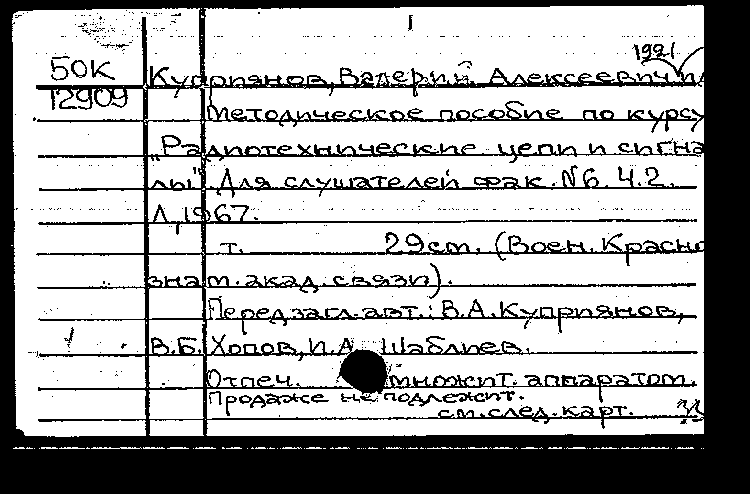 1
1921
50К
12909
Куприянов, Валерий Алексеевич и
Методическое пособие по курсу
„Радиотехнические цепи и сигна
лы". Для слушателей фак. №6. Ч.2.
Л., 1967.
т. 29см. (Воен. Красно
знам. акад. связи).
Перед загл. авт.: В.А. Куприянов,
В.Б. Хопов, И.А. Шаблиев.
Отпеч. множит. аппаратом.
Продаже не подлежит.
см. след. карт.